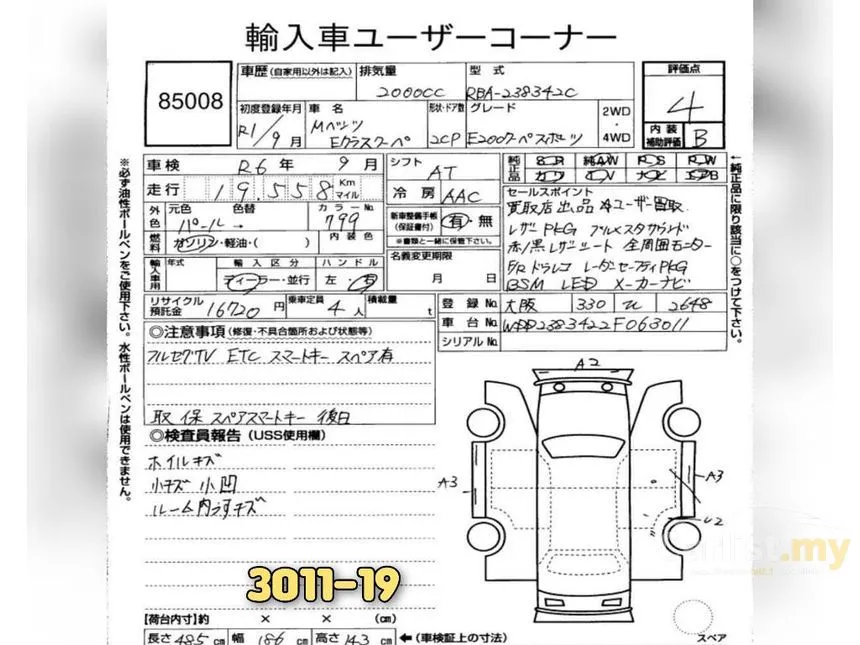 輸入車ユーザーコーナー
85008
車歴 (自家用以外は記入) 排気量 型式 評価点
2000CC RBA-238342C 4
初度登録年月 車名 形状・ドア数 グレード 2WD・4WD
R1/9月 Mベンツ Eクラスクーペ 2CP E200クーペスポーツ
内装補助評価 B
車検 R6年 9月 シフト AT
純正品 S・R 純AW P・S P・W
カワ T・V ナビ エアB
走行 19,558 Km マイル 冷房 AAC
セールスポイント
買取店出品 4ユーザー買取
レザPKG ブルメスタサラウンド
赤/黒レザーシート 全周囲モニター
F/Rドラレコ レーダーセーフティPKG
BSM LED メーカーナビ
外色 元色 色替 カラーNo.
パール → 799
新車整備手帳 (保証書付) 有・無
※書類と一緒に保管下さい。
燃料 ガソリン・軽油・( ) 内装色
名義変更期限
月 日
輸入車用 年式 輸入区分 ハンドル
ディーラー・並行 左・右
リサイクル預託金 16720円 乗車定員 4人 積載量 t
登録No. 大阪 330 2648
車台No. WDD2383422F063011
シリアルNo.
◎注意事項 (修復・不具合箇所および状態等)
フルセグTV ETC スマートキー スペア有
取 保 スペアスマートキー 後日
◎検査員報告 (USS使用欄)
ホイルキズ
小キズ 小凹
ルーム内うすキズ
A2
A3
A3
U2
3011-19
【荷台内寸】約 × × (cm)
長さ 485 cm 幅 186 cm 高さ 143 cm ←(車検証上の寸法)
スペア
※必ず油性ボールペンをご使用下さい。水性ボールペンは使用できません。
←純正品に限り該当に○をつけて下さい。
.my